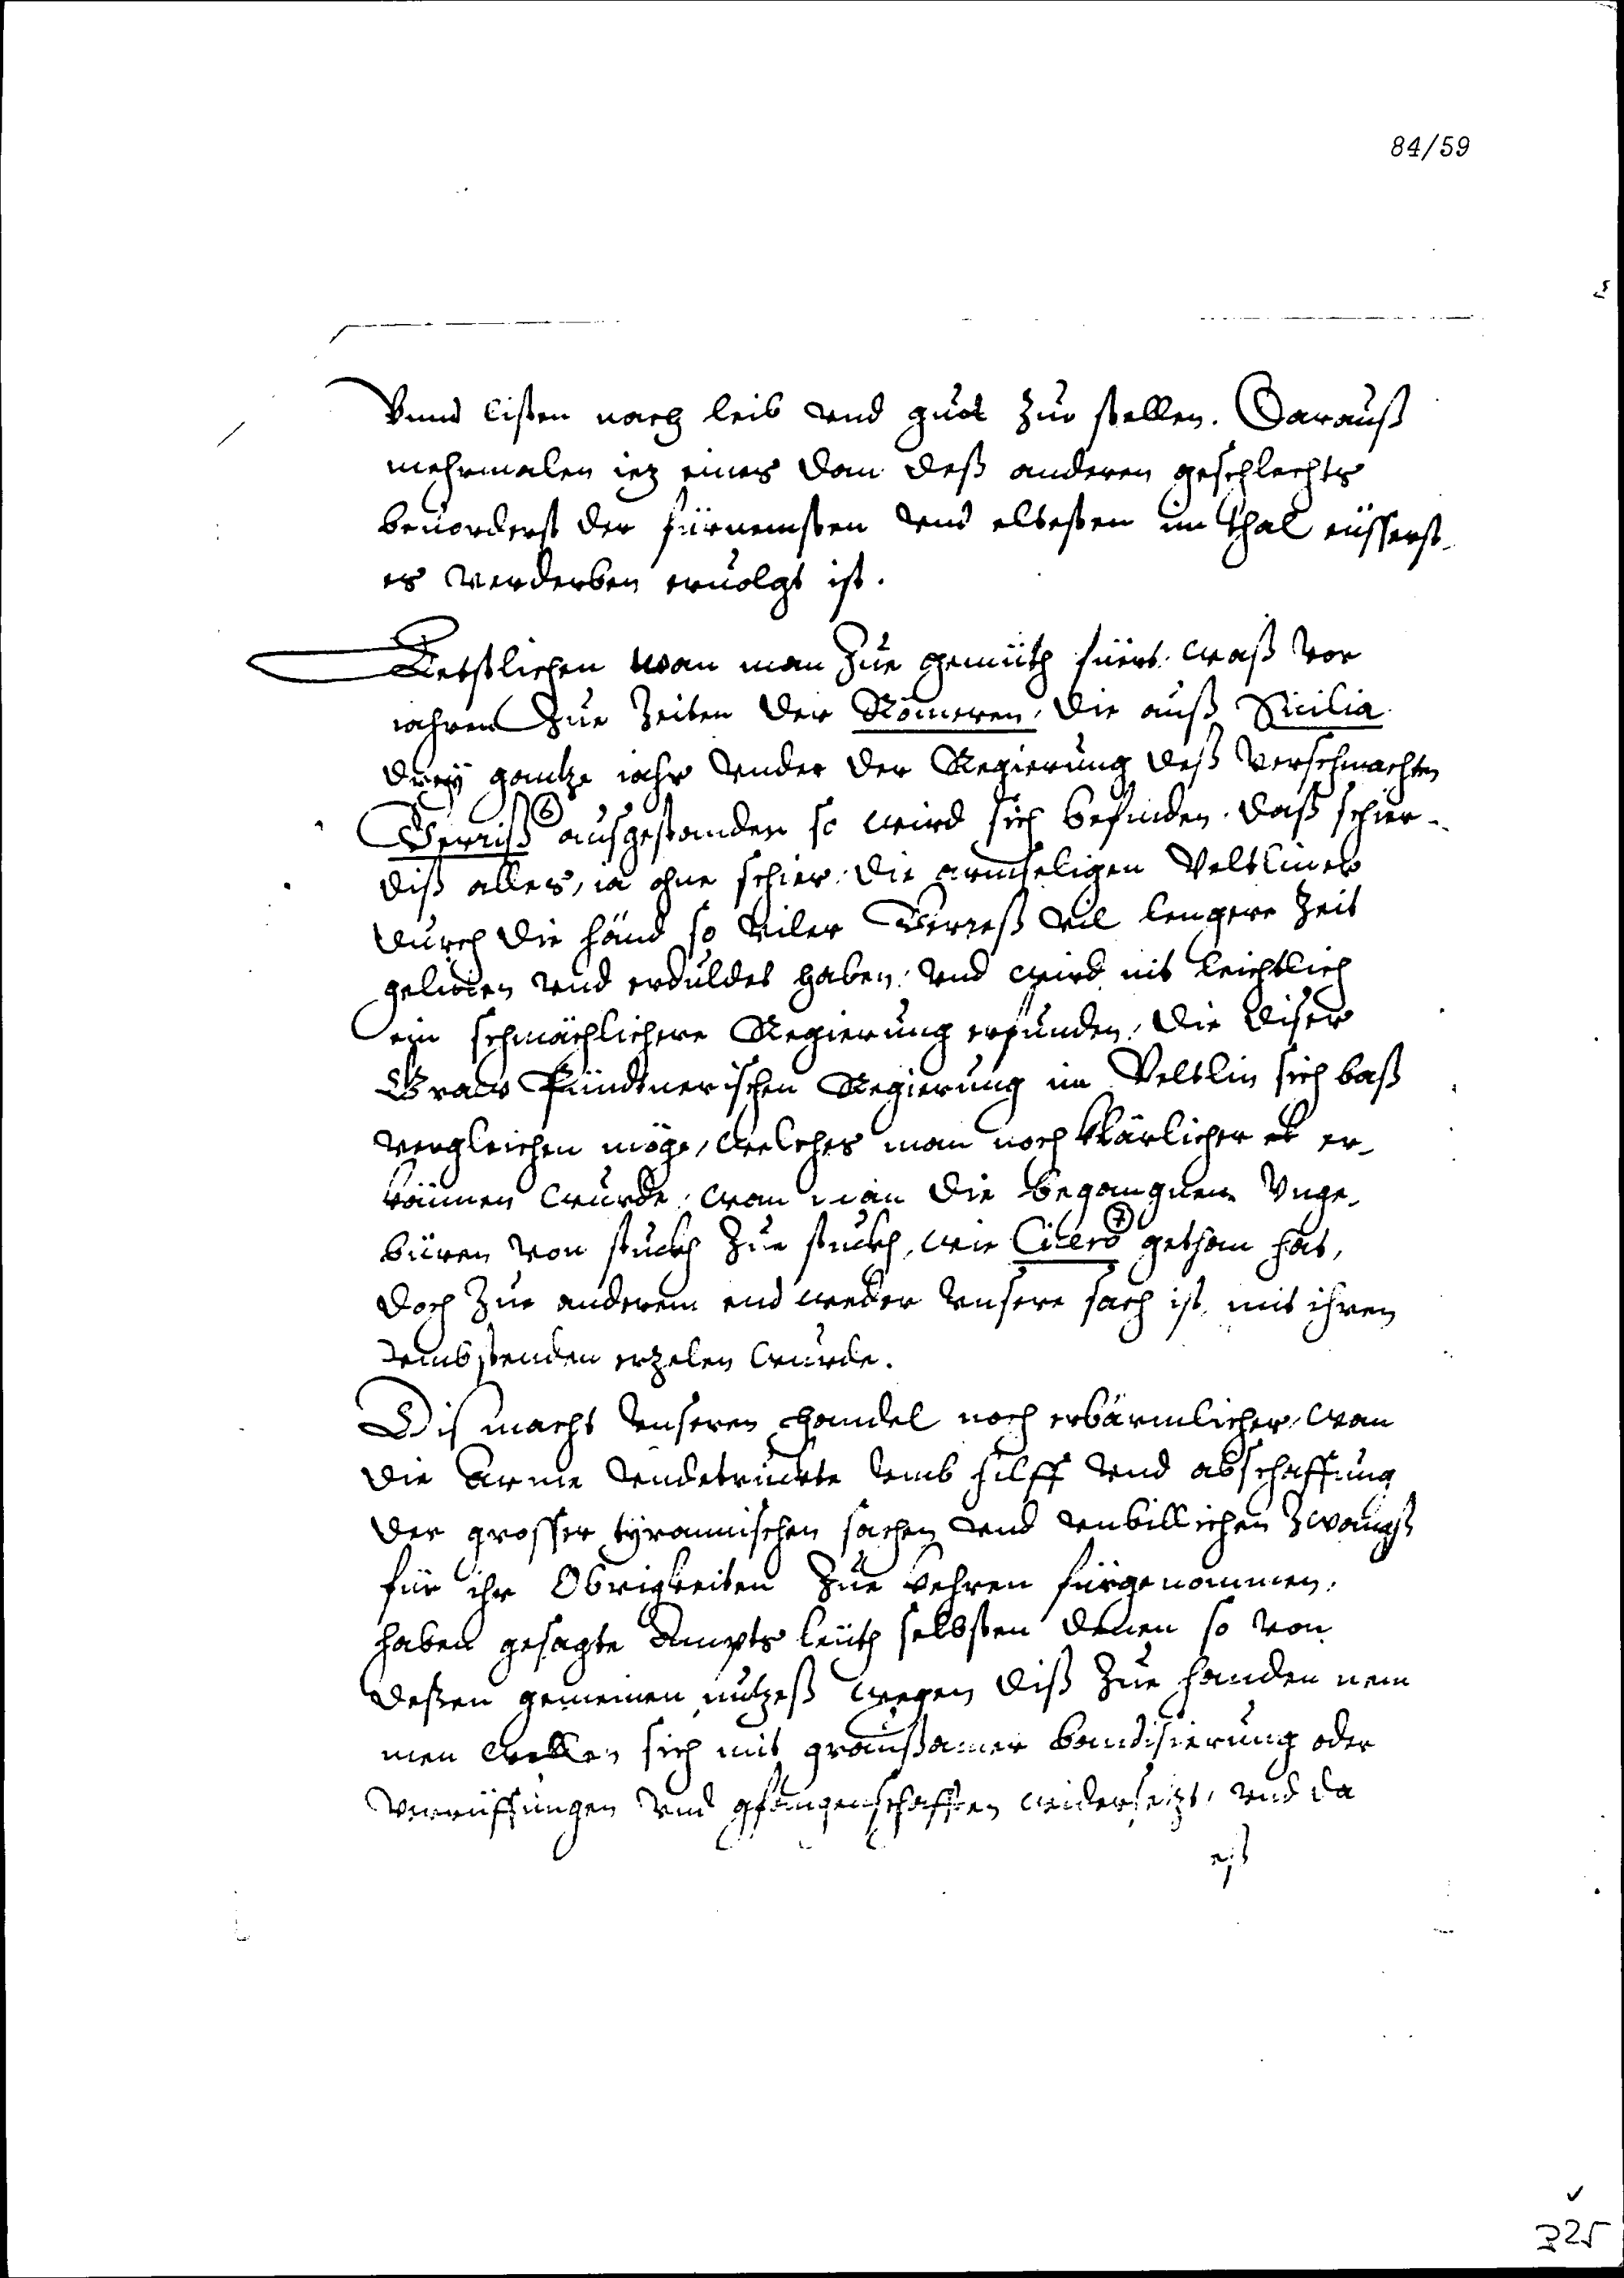 84/59
Vnnd listen nach leib vnd guot zuo stellen. Darauß
mehrmalen iez eines dan deß anderen geschlechts
beuorderst der fürnemsten vnd eltesten im thal eüsserst-
es verderben eruolgt ist.
Letstlichen wan man zue gemüth füert waß vor
iahren zue zeiten der Römeren, die auß Sicilia
dreÿ gantze iahr vnder der Regierung deß verschmachten
Verriß 6 ausgestanden so wird sich befinden. daß schier
diß alles, ia ohne schier die armseligen Veltliner
durch die händ so viler Verreß vil lengere zeit
geliten vnd erduldet haben: vnd wird nit leichtlich
ein schmächlichere Regierung erfunden, die diser
Graw Pündtnerischen Regierung im Veltlin sich baß
vergleichen möge, welches man noch klärlicher er-
kännen wurde, wan man die begangnen Vnge-
büren von stuckh zue stuckh, wie Cicero 7 gethan hat,
doch zue anderem end weder vnsere sach ist, mit ihren
vmbstenden erzelen wurde.
Dis macht vnseren handel noch erbärmlicher, wan
die arme vndetruckte vmb hilff vnd abschaffung
der grosser tyrannischen sachen vnd vnbillichen zwangß
für ihr Obrigkeiten zue kehren fürgenommen,
haben gesagte Ampts leüth selbsten denen so von
deßen gemeinen nutzeß wegen diß zue handen nem
men wellen sich mit graußamer bandisierung oder
verrüffungen vnd gfangenschafften widersetzt, vnd da
325